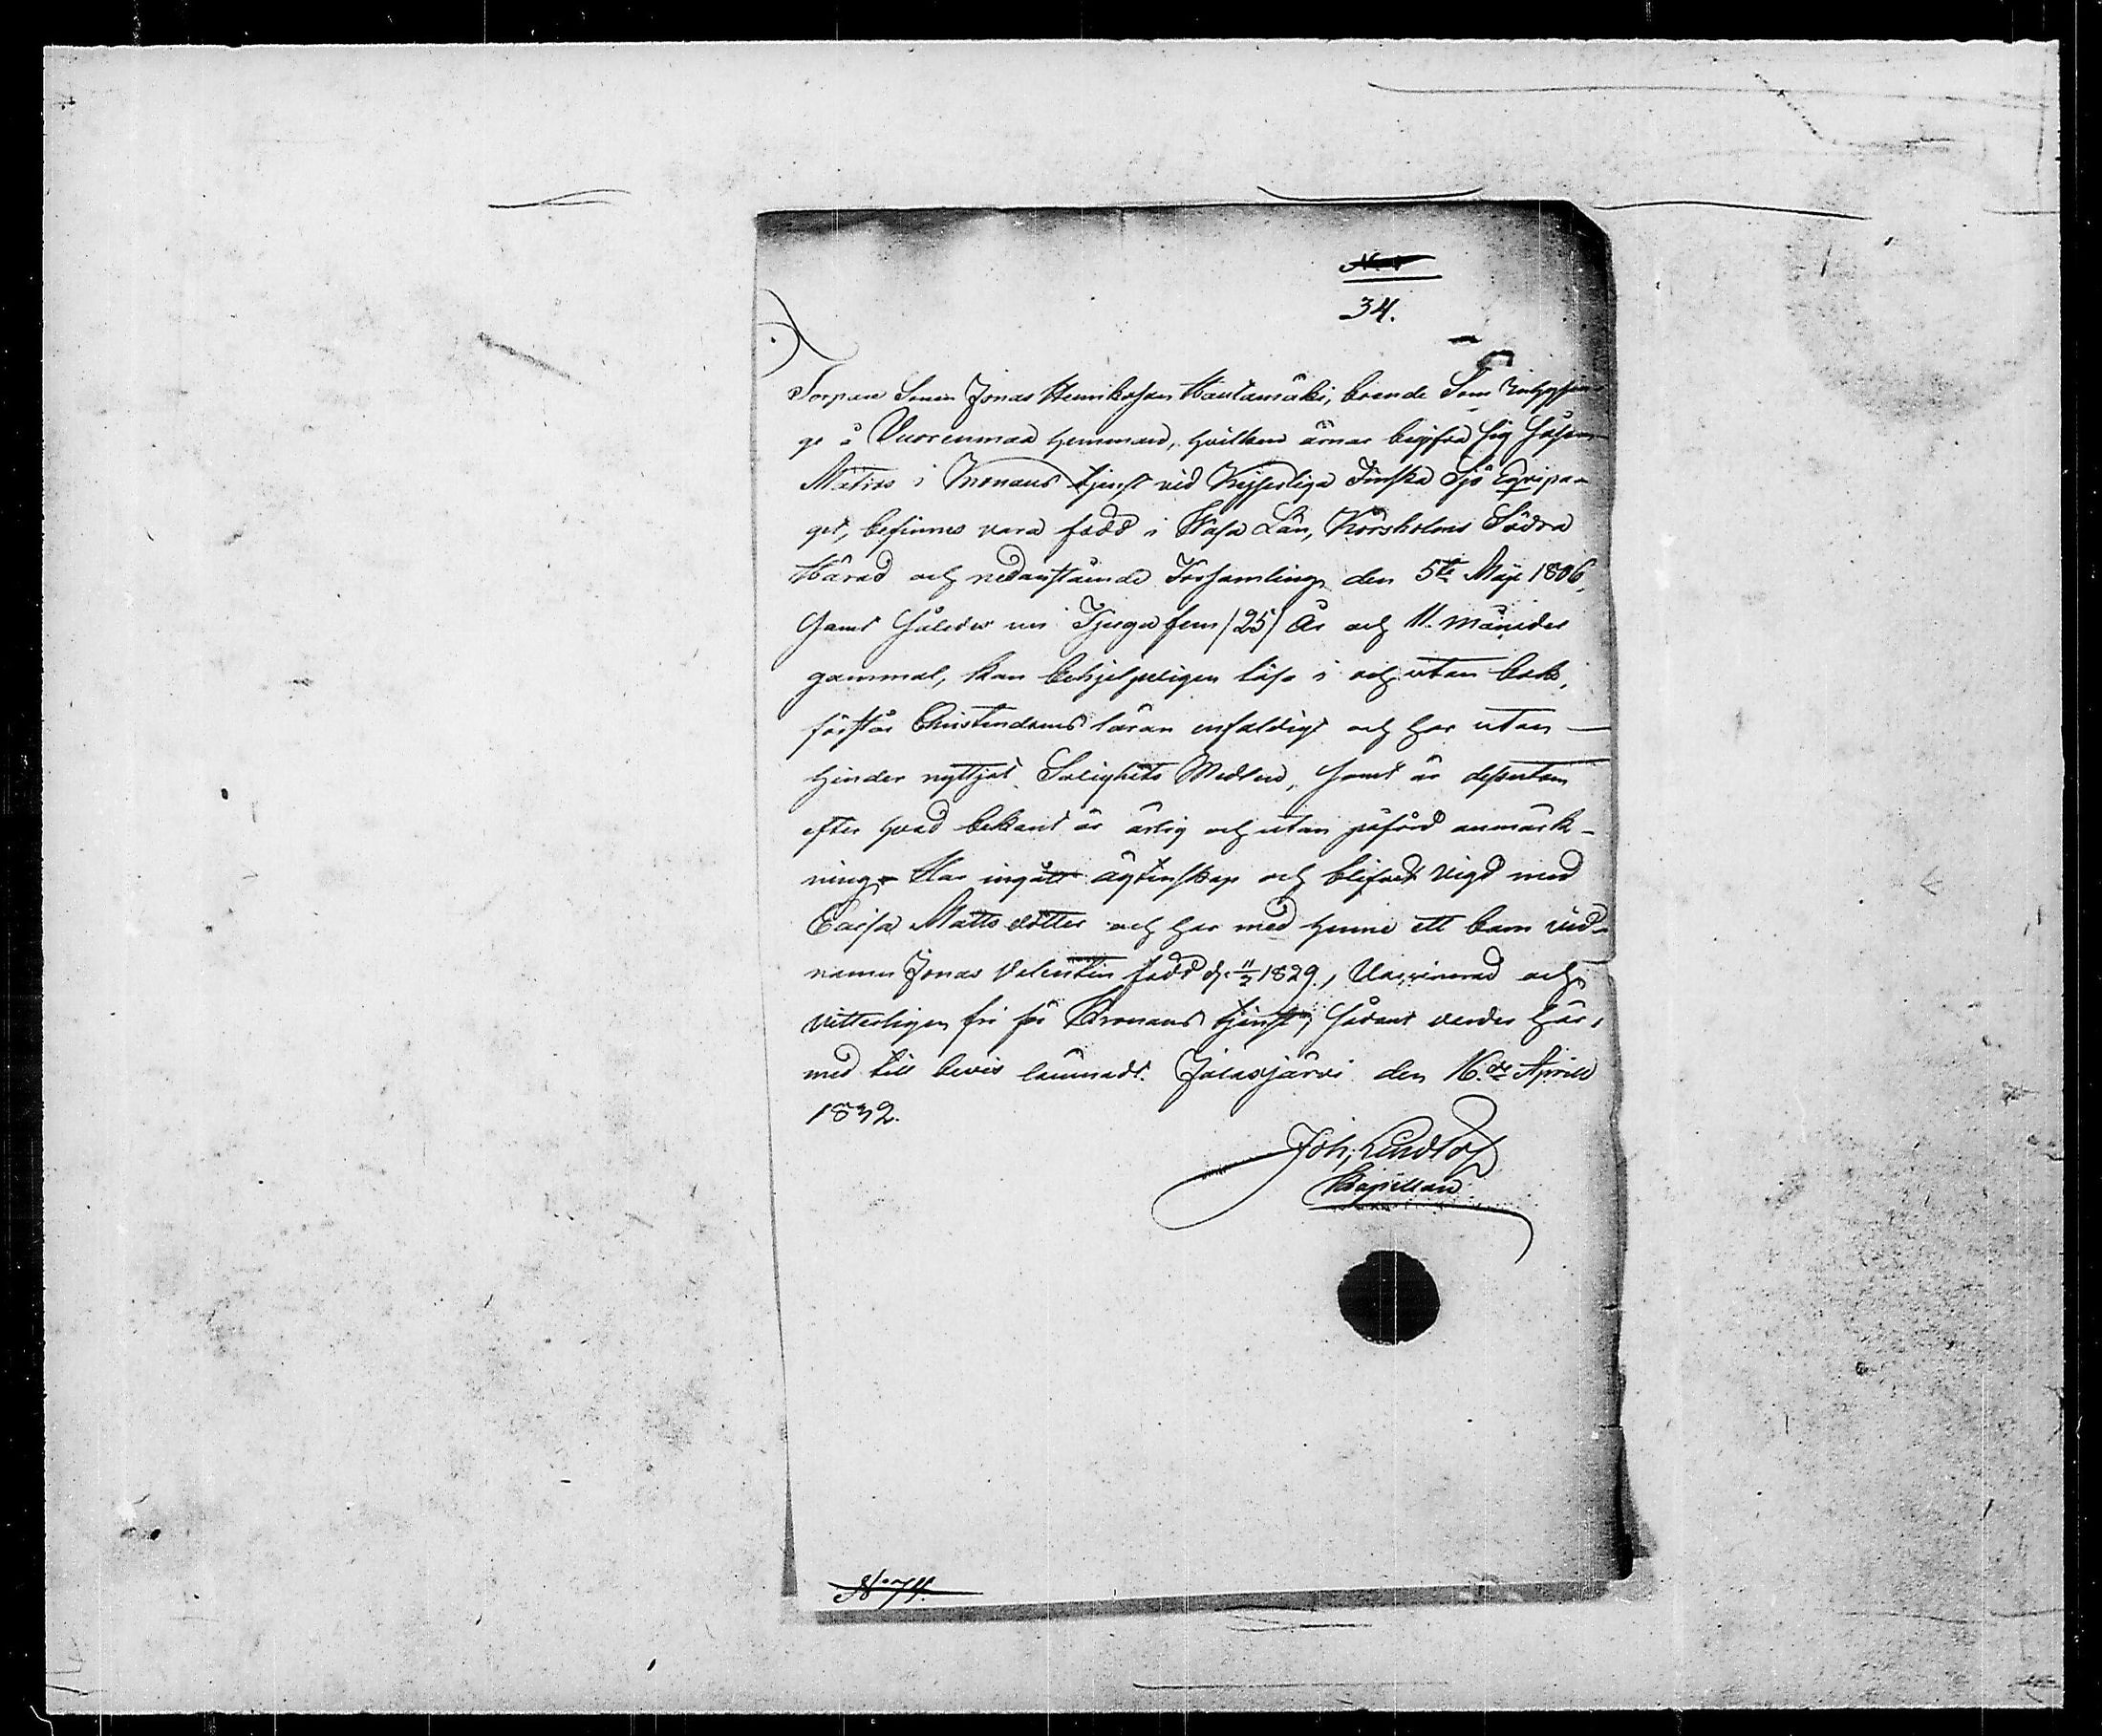 34.
Torpare Sonen Jonas Henriksson Hautamäki, boende Som Inhyses
ge å Vuorenmaa hemman, hvilken ärnar begifva sig såsom
Matros i Kronans tjenst vid Kejserliga Finska Sjö Equipa-
get, befinnes vara född i Wasa Län, Korsholms Södra
Härad och nedanstående Församling den 5te Maji 1806,
samt således nu Tjugufem /25/ År och 11. månader
gammal, kan behjelpeligen läsa i och utan bok,
förstår Christendoms läran enfaldigt och har utan
hinder nyttjat Salighets Medlen, samt är dessutom
efter hvad bekant är ärlig och utan påförd anmärk-
ning. Har ingått ägtenskap och blifvit vigd med
Caisa Matts dotter och har med henne ett barn vid
namn Jonas Valentin född d. 11/2 1829, Vaccinerad och
vitterligen fri för Kronans tjenst; sådant varder här,
med till bevis lämnadt. Jalasjärvi den 16.de Aprill
1832.
Joh. Lindlöf
Kapellan